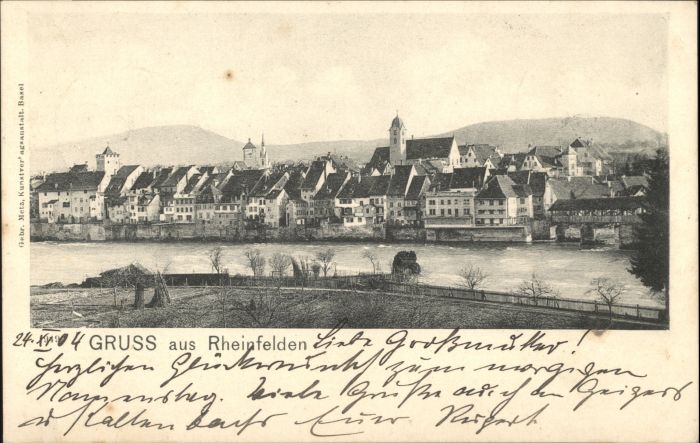 Gebr. Metz, Kunstverlagsanstalt, Basel
24. 04 GRUSS aus Rheinfelden Liebe Großmutter!
Herzlichen Glückwunsch zum morgigen
Namenstag. Viele Grüße auch an Geigers
u Kaltenbachs Euer Rupert